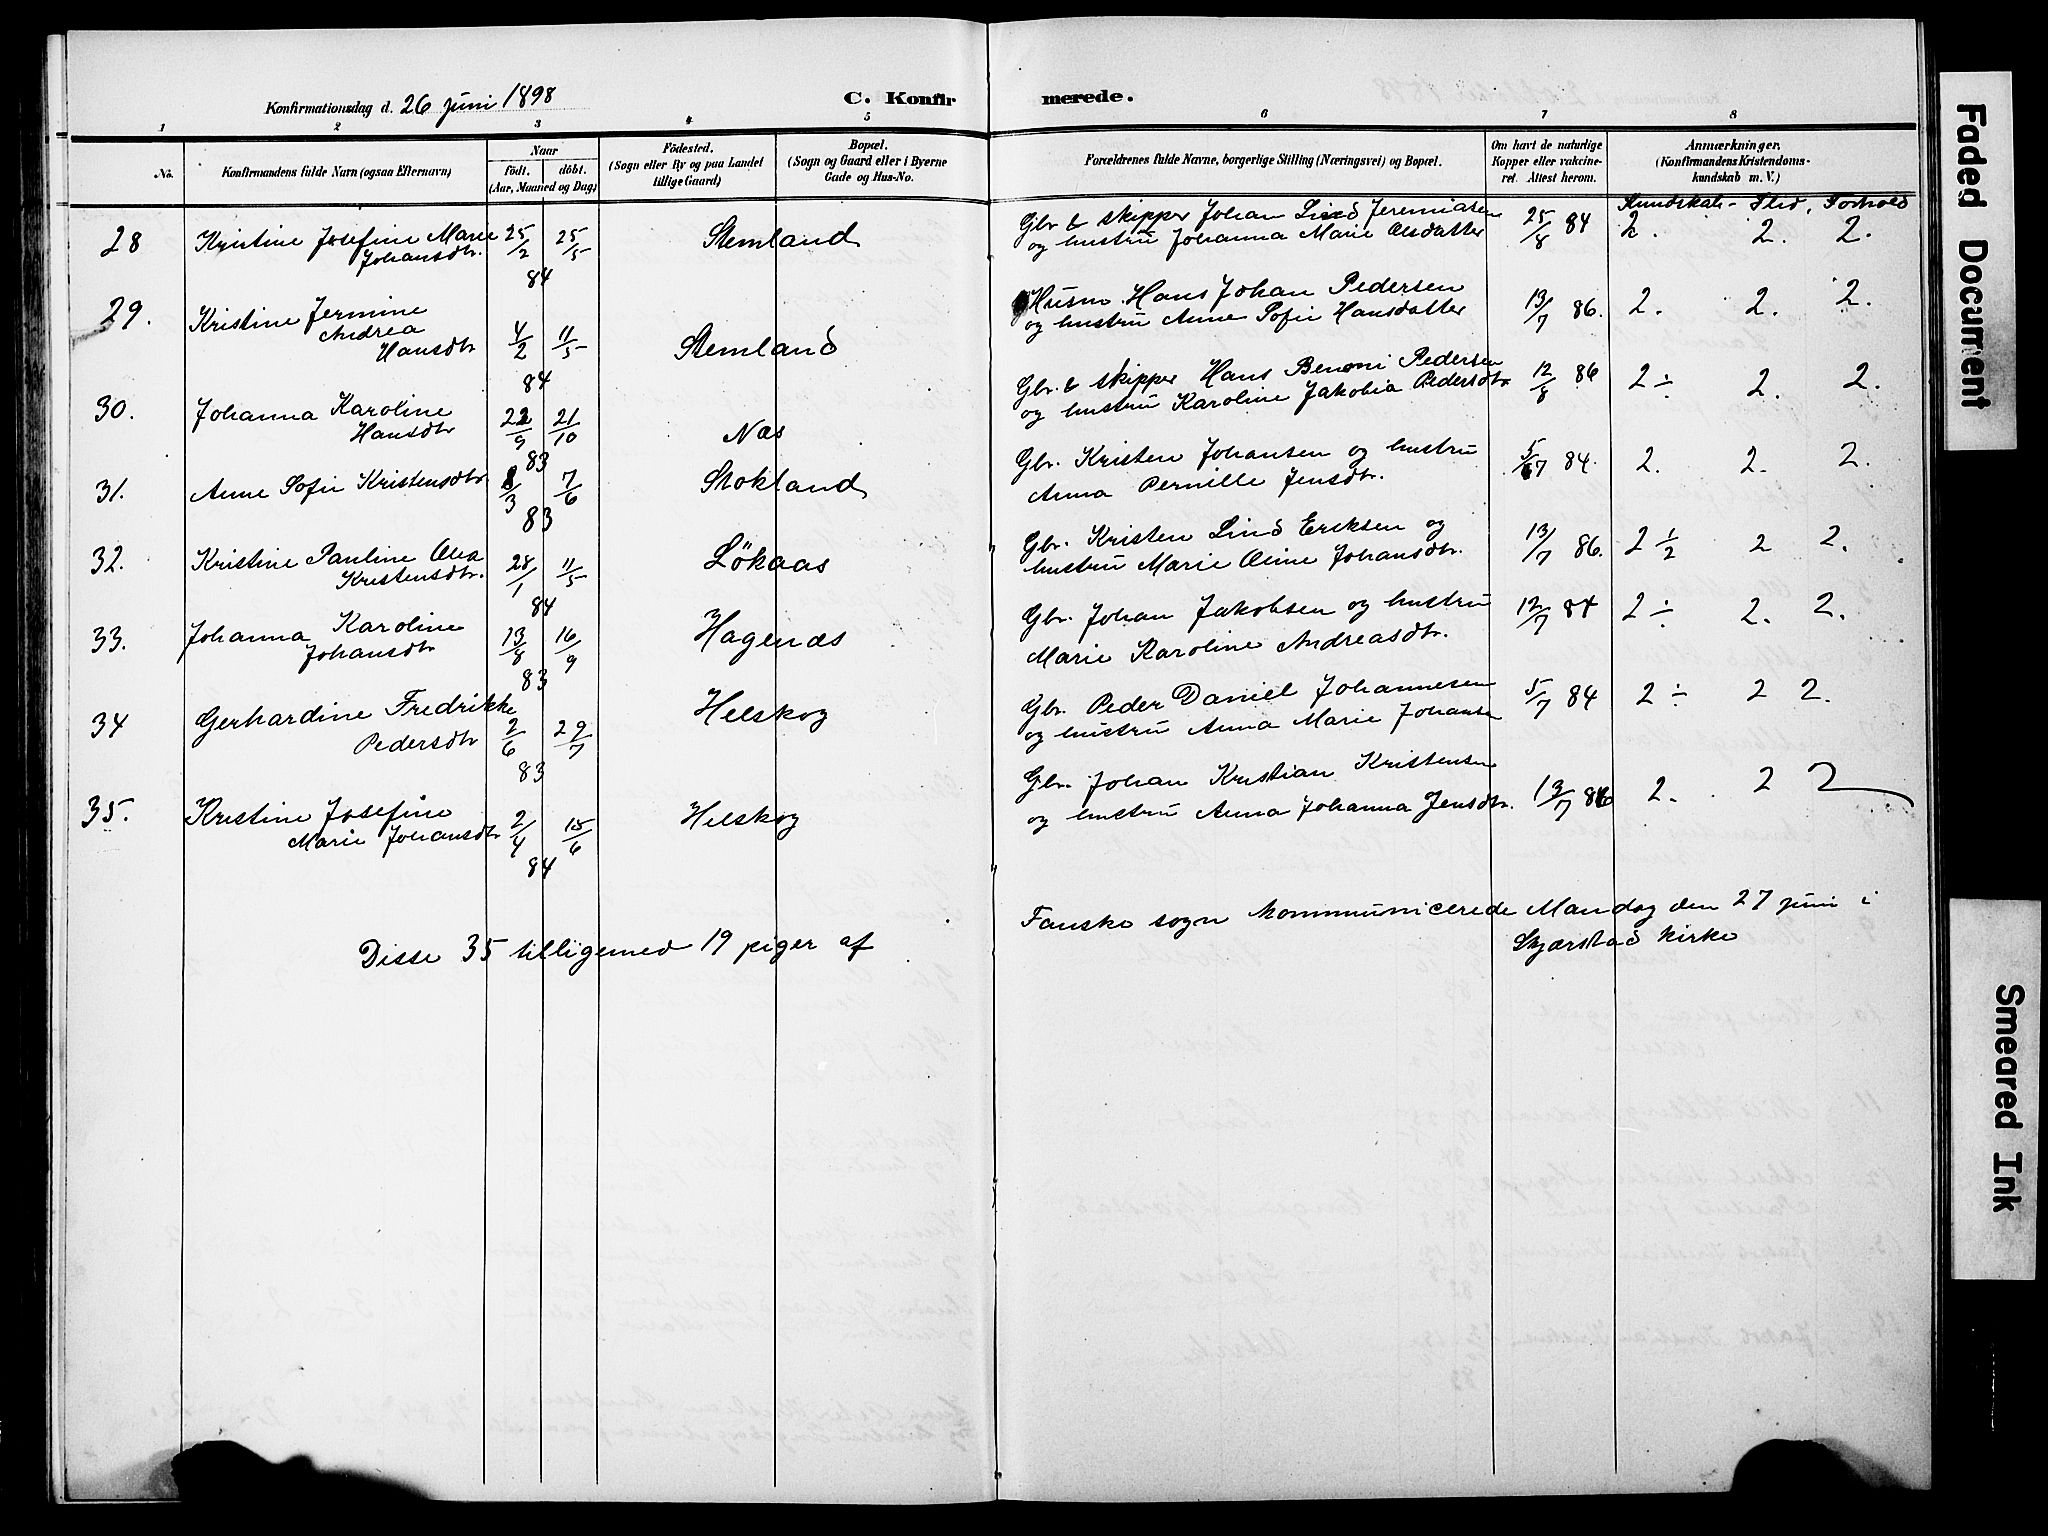 Konfirmationsdag d. 26 juni 1898
C. Konfir merede.
1 2 3 4 5 6 7 8
No. Konfirmandens fulde Navn (ogsaa Efternavn)
Naar
födt. döbt.
(Aar, Maaned og Dag)
Födested.
(Sogn eller By og paa Landet
tillige Gaard)
Bopæl.
(Sogn og Gaard eller i Byerne
Gade og Hus-No.
Forældrenes fulde Navne, borgerlige Stilling (Næringsvei) og Bopæl.
Om havt de naturlige
Kopper eller vakcine-
ret. Attest herom.
Anmærkninger.
(Konfirmandens Kristendoms-
kundskab m. V.)
Kundskab - Flid, Forhold
28 Kristine Josefine Marie 25/2 25/5 Stemland Gbr & skipper Johan Lind Jeremiasen 25/8 84 2. 2. 2.
Johansdtr. 84 og hustru Johanna Marie Olsdatter
29. Kristine Jermine Husm. Hans Johan Pedersen 13/7 86. 2. 2. 2.
Andrea 4/2 11/5 og hustru Anne Sofie Hansdatter
Hansdtr 84 Stemland
30. Johanna Karoline 22/9 21/10 Næs Gbr. & skipper Hans Benoni Pedersen 12/8 86 2 ÷ 2. 2.
Hansdtr 83 og hustru Karoline Jakobia Pedersdtr
31. Anne Sofie Kristensdtr 8/3 7/6 Stokland Gbr. Kristen Johansen og hustru 5/7 84. 2. 2. 2.
83 Anna Pernille Jensdtr.
32. Kristine Pauline Olea 28/1 11/5 Lökaas Gbr. Kristen Lind Eriksen og 13/7 86. 2 ½ 2 2.
Kristensdtr. 84 hustru Marie Oline Johansdtr.
33. Johanna Karoline 13/8 16/9 Hagenæs Gbr. Johan Jakobsen og hustru 12/7 84 2 ÷ 2. 2.
Johansdtr 83 Marie Karoline Andreasdtr.
34 Gerhardine Fredrikke 2/6 29/7 Helskog Gbr. Peder Daniel Johannesen 5/7 84 2 ÷ 2 2.
Pedersdtr 83 og hustru Anna Marie Johansen
35. Kristine Josefine 2/4 15/6 Helskog Gbr. Johan Kristian Kristensen 13/7 86 2. 2 2
Marie Johansdtr 84 og hustru Anna Johanna Jensdtr.
Disse 35 tilligemed 19 piger af Fauske sogn kommunicerede Mandag den 27 juni i
Skjærstad kirke
Faded Document
Smeared Ink